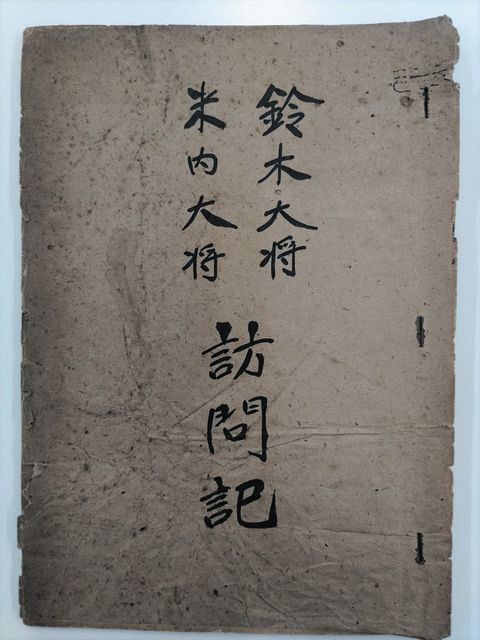 鈴木大将
米内大将
訪問記